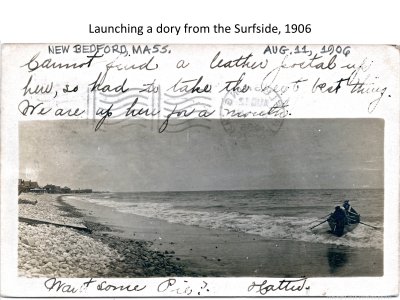 Launching a dory from the Surfside, 1906
NEW BEDFORD, MASS. AUG. 11, 1906
Cannot find a leather postal up
here, so had to take the next best thing.
We are up here for a month.
Want some Pie? Hattie.